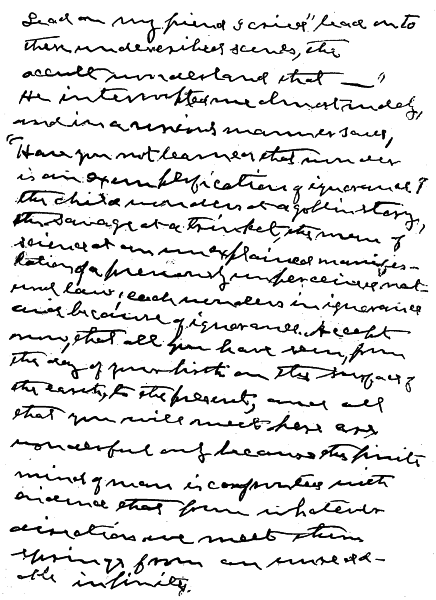 Lead on my friend I cried "lead on to
these undescribed scenes, the
occult wonderland that —"
He interrupted me almost rudely,
and in a serious manner said,
"Have you not learned that wonder
is an exemplification of ignorance?
the child wonders at a goblin story,
the savage at a trinket, the man of
science at an unexplained manifes-
tation of a previously unperceived nat-
ural law; each wonders in ignorance
and because of ignorance. Accept
now, that all you have seen, from
the day of your birth on the surface of
the earth, to the present, and all
that you will meet here are
wonderful only because the finite
mind of man is confronted with
evidence that from whatever
direction we meet them
springs from an unsee-
able infinity.